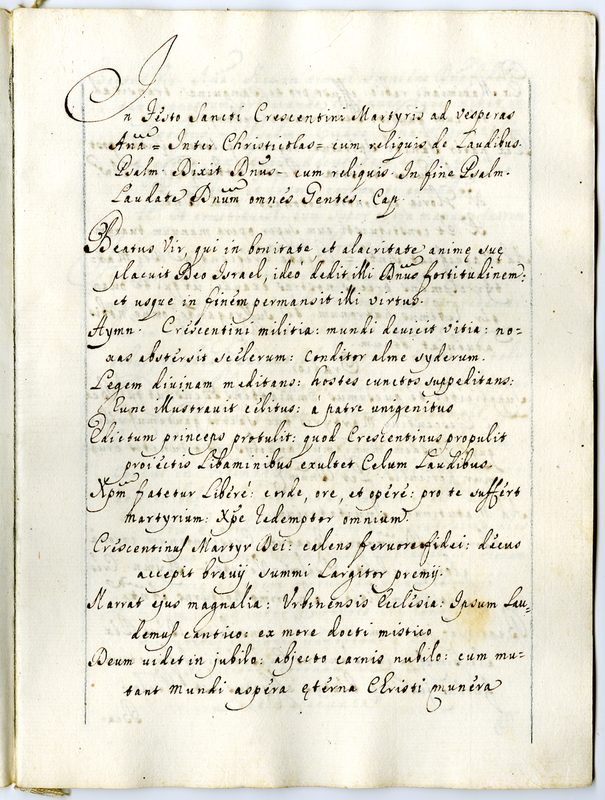 In Festo Sancti Crescentini Martyris ad vesperas
Anã = Inter Christicolas = cum reliquis de Laudibus.
Psalm. Dixit Dnus - cum reliquis. In fine Psalm.
Laudate Dnum omnes Gentes. Cap.
Beatus Vir, qui in bonitate, et alacritate animę suę
placuit Deo Israel, ideò dedit illi Dnus fortitudinem:
et usque in finem permansit illi virtus.
Hymn. Crescentini militia: mundi devicit vitia: no=
xas abstersit scelerum: Conditor alme syderum.
Legem divinam meditans: hostes cunctos suppeditans:
Hunc illustravit celitus: á patre unigenitus
Edictum princeps protulit: quod Crescentinus propulit
proiectis Libaminibus exultet Celum Laudibus.
Xpm fatetur Liberé: corde, ore, et opere: pro te suffert
martyrium: Xpe Redemptor omnium.
Crescentinus Martyr Dei: calens fervore fidei: decus
accepit bravij summi Largitor premij.
Narrat ejus magnalia: Urbinensis Ecclesia: Ipsum Lau=
demus cantico: ex more docti mistico
Deum videt in jubilo: abjecto carnis nubilo: cum mu=
tant mundi aspera ęterna Christi munera